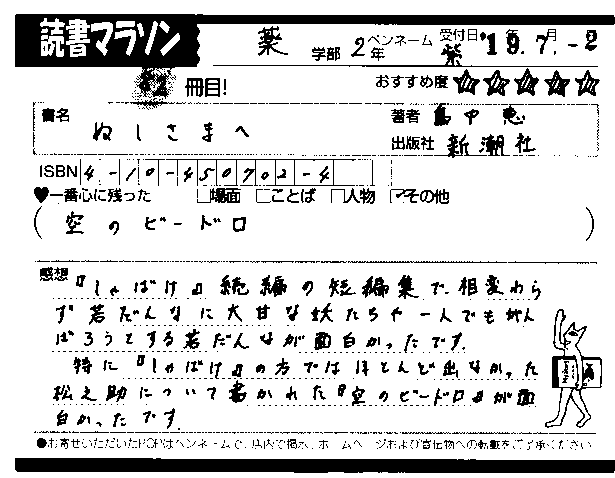 読書マラソン
薬 学部 2年 ペンネーム 紫 受付日 '19.7.-2
冊目!
おすすめ度 ☆☆☆☆☆
書名 ぬしさまへ
著者 畠中 恵
出版社 新潮社
ISBN 4-10-450702-4
♥一番心に残った □場面 □ことば □人物 ☑その他
(空のビードロ)
感想 『しゃばけ』続編の短編集で、相変わら
ず若だんなに大甘な妖たちや一人でもがん
ばろうとする若だんなが面白かったです。
特に『しゃばけ』の方ではほとんど出なかった
松之助について書かれた『空のビードロ』が面
白かったです。
●お寄せいただいたPOPはペンネームで、店内で掲示、ホームページおよび宣伝物への転載をご了承ください